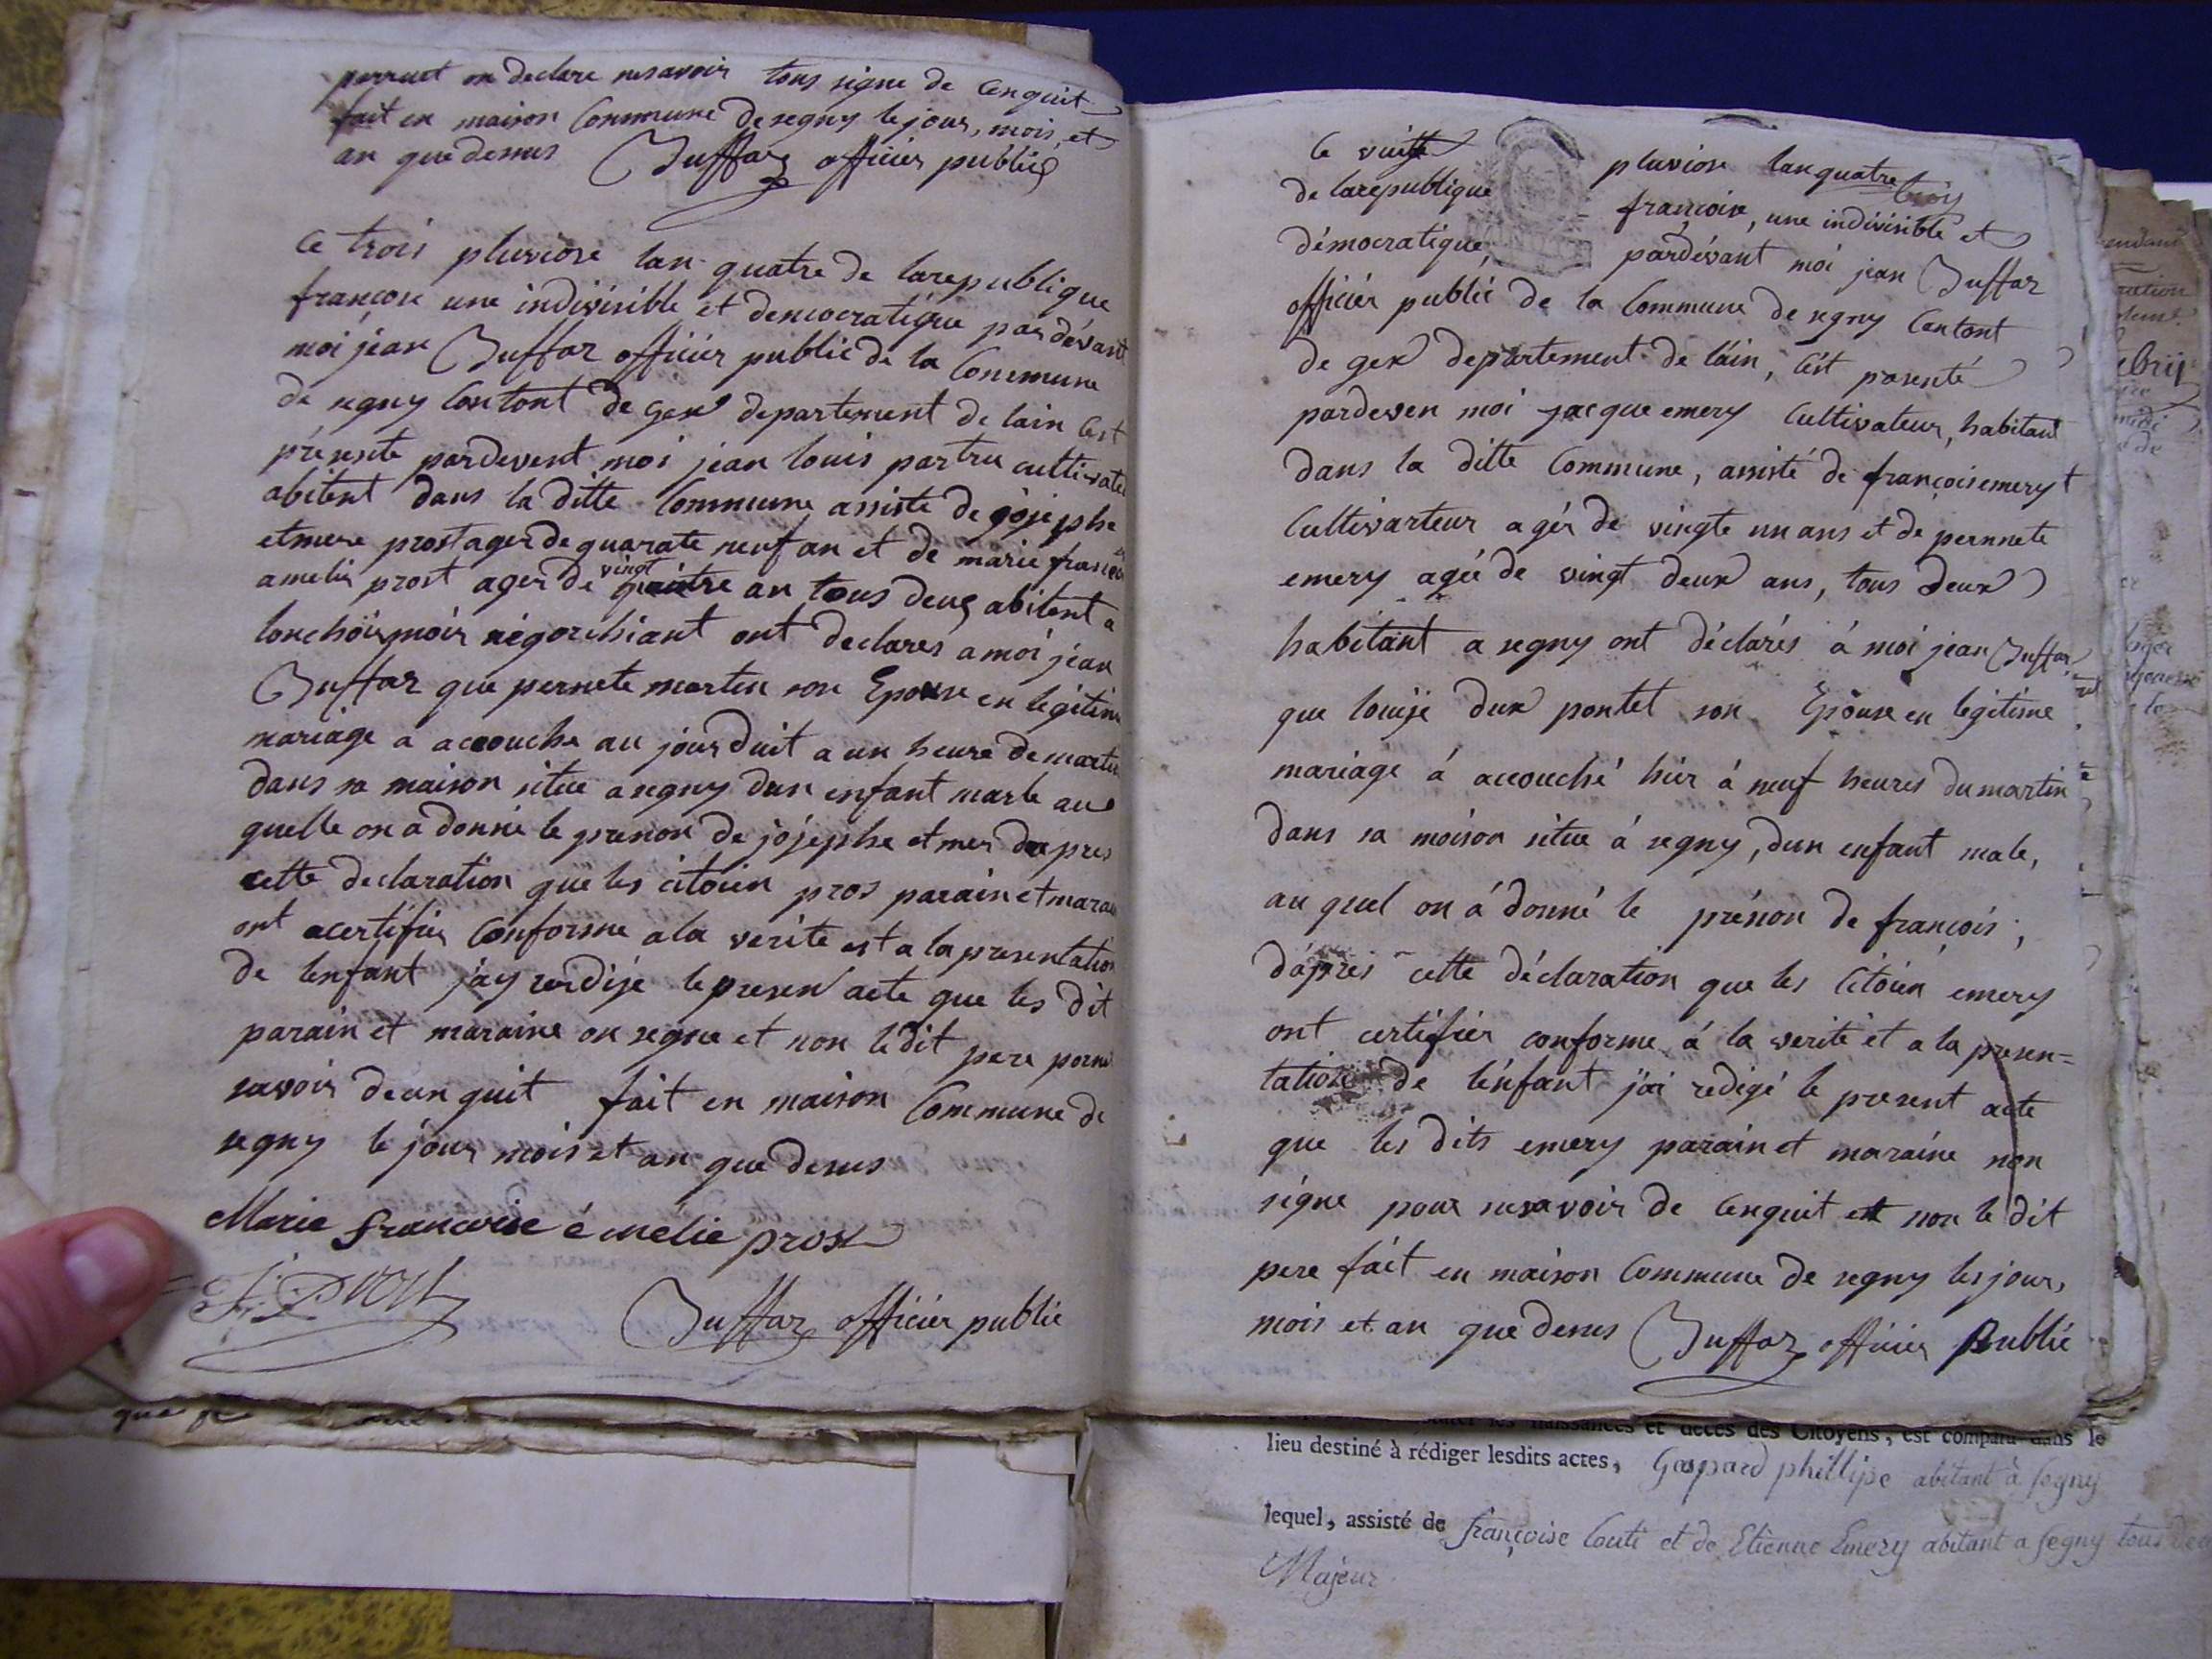 perruet on declare nesavoir tous signe de cenquit
fait en maison Commune de segny le jour, mois, et
an que dessus Buffaz officier publié
Ce trois pluviose lan quatre de larepublique
françoise une indivisible et democratique par dévant
moi jean Buffaz officier publié de la Commune
de segny Contont de Gex departement de lain Cest
présente pardevent moi jean louis partru cultivate
abitent dans la ditte Commune assiste de jojephe
etmere prost ager de quarate neuf an et de marie françoi
amelie prost ager de vingt quaitre an tous deux abitent a
négorchiant ont declarés a moi jean
Buffaz que pernete martin son Epouse en légitim
mariage a accouche au jourduit a un heure de martin
dans sa maison situe a segny dun enfant marle au
quelle on a donné le prenon de jojephe etmer dapres
cette declaration que les citoien pros parain et marai
ont acertifier Conforme a la verite est a la presentation
de lenfant jay rerdije le presen acte que les dit
parain et maraine on segne et non ledit pere porne
savoir deanquit fait en maison Commune de
segny le jour mois et an que desus
Marie francoise émélie prost
J. Prost
Buffaz officier publié
Ce vuitte pluviose lan quatre troij
de larepublique françoise, une indivisible et
démocratique, pardévant moi jean Buffaz
officier publié de la Commune de segny Contont
de gex departement de láin, cést presenté
pardeven moi jacque emery Cultivateur, habitant
dans la ditte Commune, assisté de françois emery
Cultivarteur agér de vingte un ans et de pernnete
emery ageé de vingt deux ans, tous deux
habitant a segny ont déclarés á moi jean Buffaz
que louije dux pontet son Epouse en legitime
mariage á accouché hier á neuf heures du martin
dans sa moison situe á segny, dun enfant male,
au quel on á donné le prénon de françois;
dápres cette déclaration que les Citoién emery
ont certifiér conforme á la verité et a la presen=
tation de lénfant jái redigé le present acte
que les dits emery parain et maraine non
signe pour nesavoir de cenquit et non le dit
pere fáit en maison Commune de segny les jour,
mois et an que desus Buffaz officier Publié
naissances et décès des Citoyens, est comparu dans le
lieu destiné à rédiger lesdits actes, Gaspard phillipe abitant à segny
lequel, assisté de françoise Couti et de Etienne Emery abitant a segny tous deu
Majeur